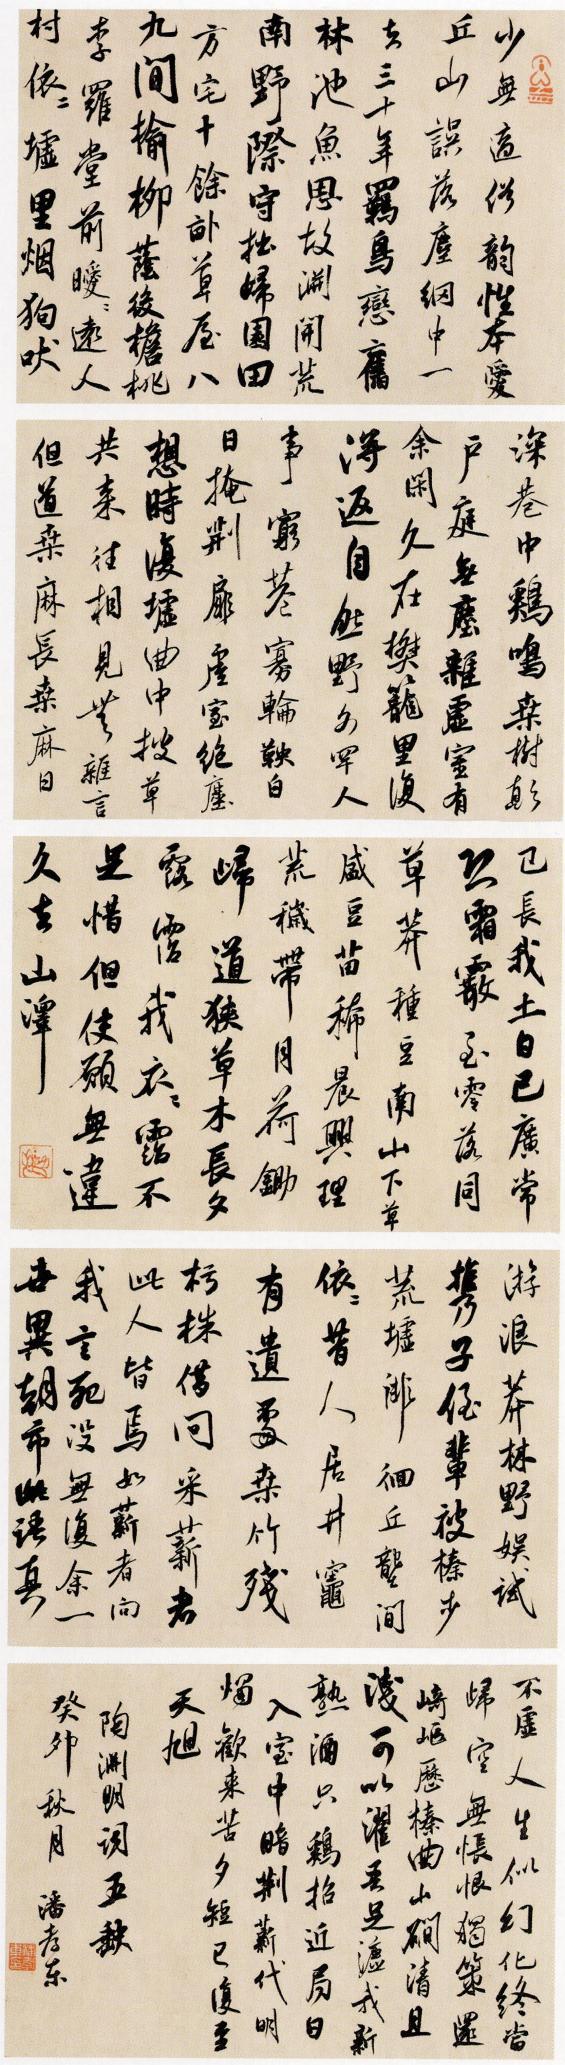 少無適俗韵性本愛
丘山誤落塵網中一
去三十年羈鳥戀舊
林池魚思故淵開荒
南野際守拙歸園田
方宅十餘畝草屋八
九間榆柳蔭後檐桃
李羅堂前曖〻遠人
村依〻墟里烟狗吠
深巷中鷄鳴桑樹顛
户庭無塵雜虛室有
余閑久在樊籠里復
得返自然野外罕人
事窮巷寡輪鞅白
日掩荆扉虛室絶塵
想時復墟曲中披草
共来往相見無雜言
但道桑麻長桑麻日
已長我土日已廣常
恐霜霰至零落同
草莽種豆南山下草
盛豆苗稀晨興理
荒穢帶月荷鋤
歸道狹草木長夕
露霑我衣〻霑不
足惜但使願無違
久去山澤
游浪莽林野娱試
携子侄輩披榛步
荒墟徘徊丘壟間
依〻昔人居井竈
有遺處桑竹殘
朽株借问采薪者
此人皆焉如薪者向
我言死没無復余一
世異朝市此語真
不虛人生似幻化終當
歸空無悵恨獨策還
崎嶇歷榛曲山澗清且
淺可以濯吾足漉我新
熟酒只鷄招近局日
入室中暗荆薪代明
燭歡来苦夕短已復至
天旭
陶淵明詞五

癸卯秋月 潘孝東